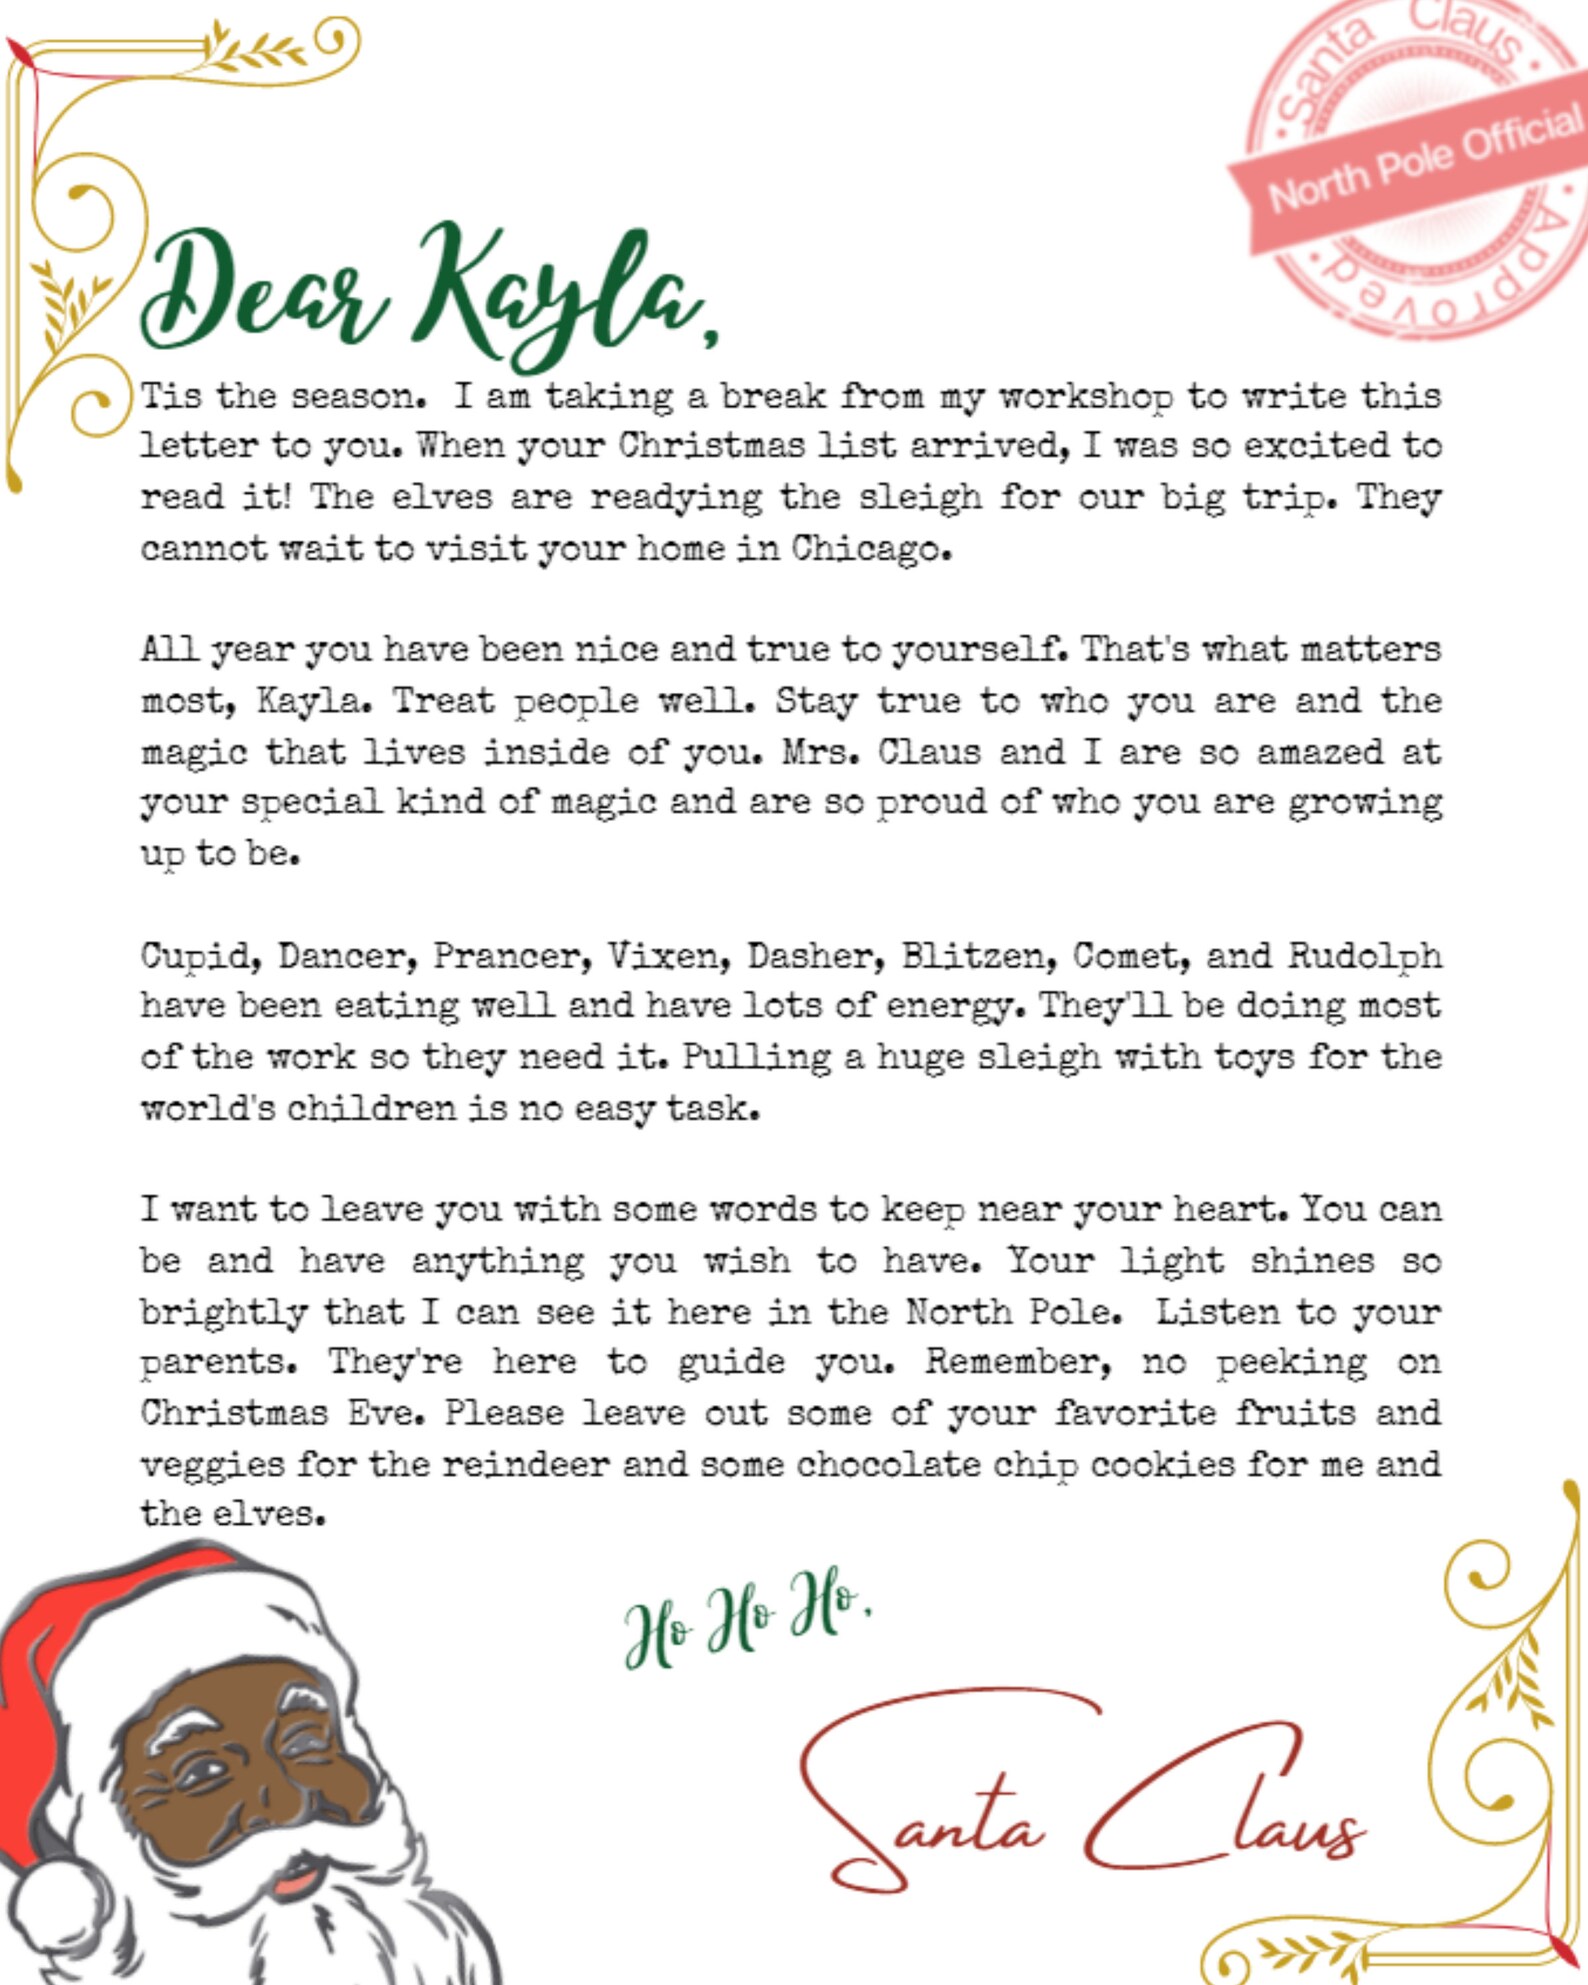 Santa Claus
North Pole Official
Approved
Dear Kayla,
Tis the season.  I am taking a break from my workshop to write this
letter to you. When your Christmas list arrived, I was so excited to
read it! The elves are readying the sleigh for our big trip. They
cannot wait to visit your home in Chicago.
All year you have been nice and true to yourself. That's what matters
most, Kayla. Treat people well. Stay true to who you are and the
magic that lives inside of you. Mrs. Claus and I are so amazed at
your special kind of magic and are so proud of who you are growing
up to be.
Cupid, Dancer, Prancer, Vixen, Dasher, Blitzen, Comet, and Rudolph
have been eating well and have lots of energy. They'll be doing most
of the work so they need it. Pulling a huge sleigh with toys for the
world's children is no easy task.
I want to leave you with some words to keep near your heart. You can
be and have anything you wish to have. Your light shines so
brightly that I can see it here in the North Pole.  Listen to your
parents. They're here to guide you. Remember, no peeking on
Christmas Eve. Please leave out some of your favorite fruits and
veggies for the reindeer and some chocolate chip cookies for me and
the elves.
Ho Ho Ho,
Santa Claus